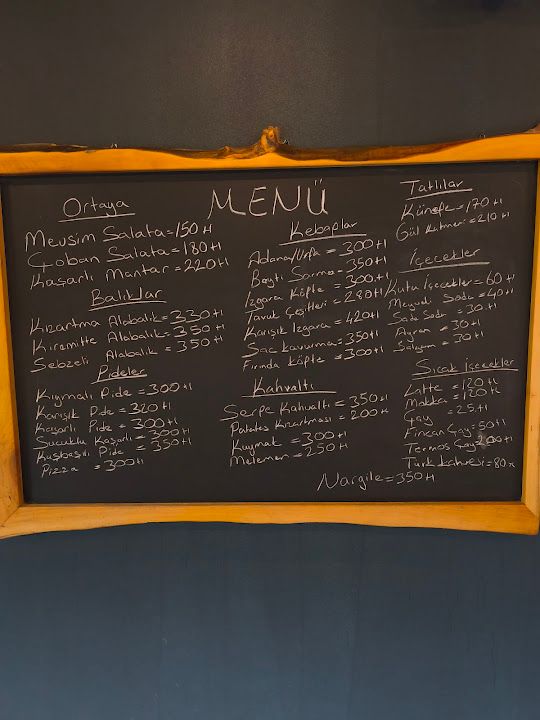 MENÜ
Ortaya
Mevsim Salata=150 tl
Çoban Salata=180 tl
Kaşarlı Mantar=220 tl
Balıklar
Kızartma Alabalık=330 tl
Kiremitte Alabalık=350 tl
Sebzeli Alabalık=350 tl
Pideler
Kıymalı Pide=300 tl
Karışık Pide=320 tl
Kaşarlı Pide=300 tl
Sucuklu Kaşarlı=300 tl
Kuşbaşılı Pide=350 tl
Pizza=300 tl
Kebaplar
Adana/Urfa=300 tl
Beyti Sarma=350 tl
Izgara Köfte=300 tl
Tavuk Çeşitleri=280 tl
Karışık Izgara=420 tl
Sac kavurma=350 tl
Fırında köfte=300 tl
Kahvaltı
Serpe Kahvaltı=350 tl
Patates Kızartması=200 tl
Kuymak=300 tl
Melemen=250 tl
Tatlılar
Künefe=170 tl
Gül Katmeri=210 tl
İçecekler
Kutu İçecekler=60 tl
Meyveli Soda=40 tl
Sade Soda=30 tl
Ayran=30 tl
Şalgam=30 tl
Sıcak İçecekler
Latte=120 tl
Makka=120 tl
Çay=25 tl
Fincan Çay=50 tl
Termos Çay=200 tl
Türk kahvesi=80
Nargile=350 tl